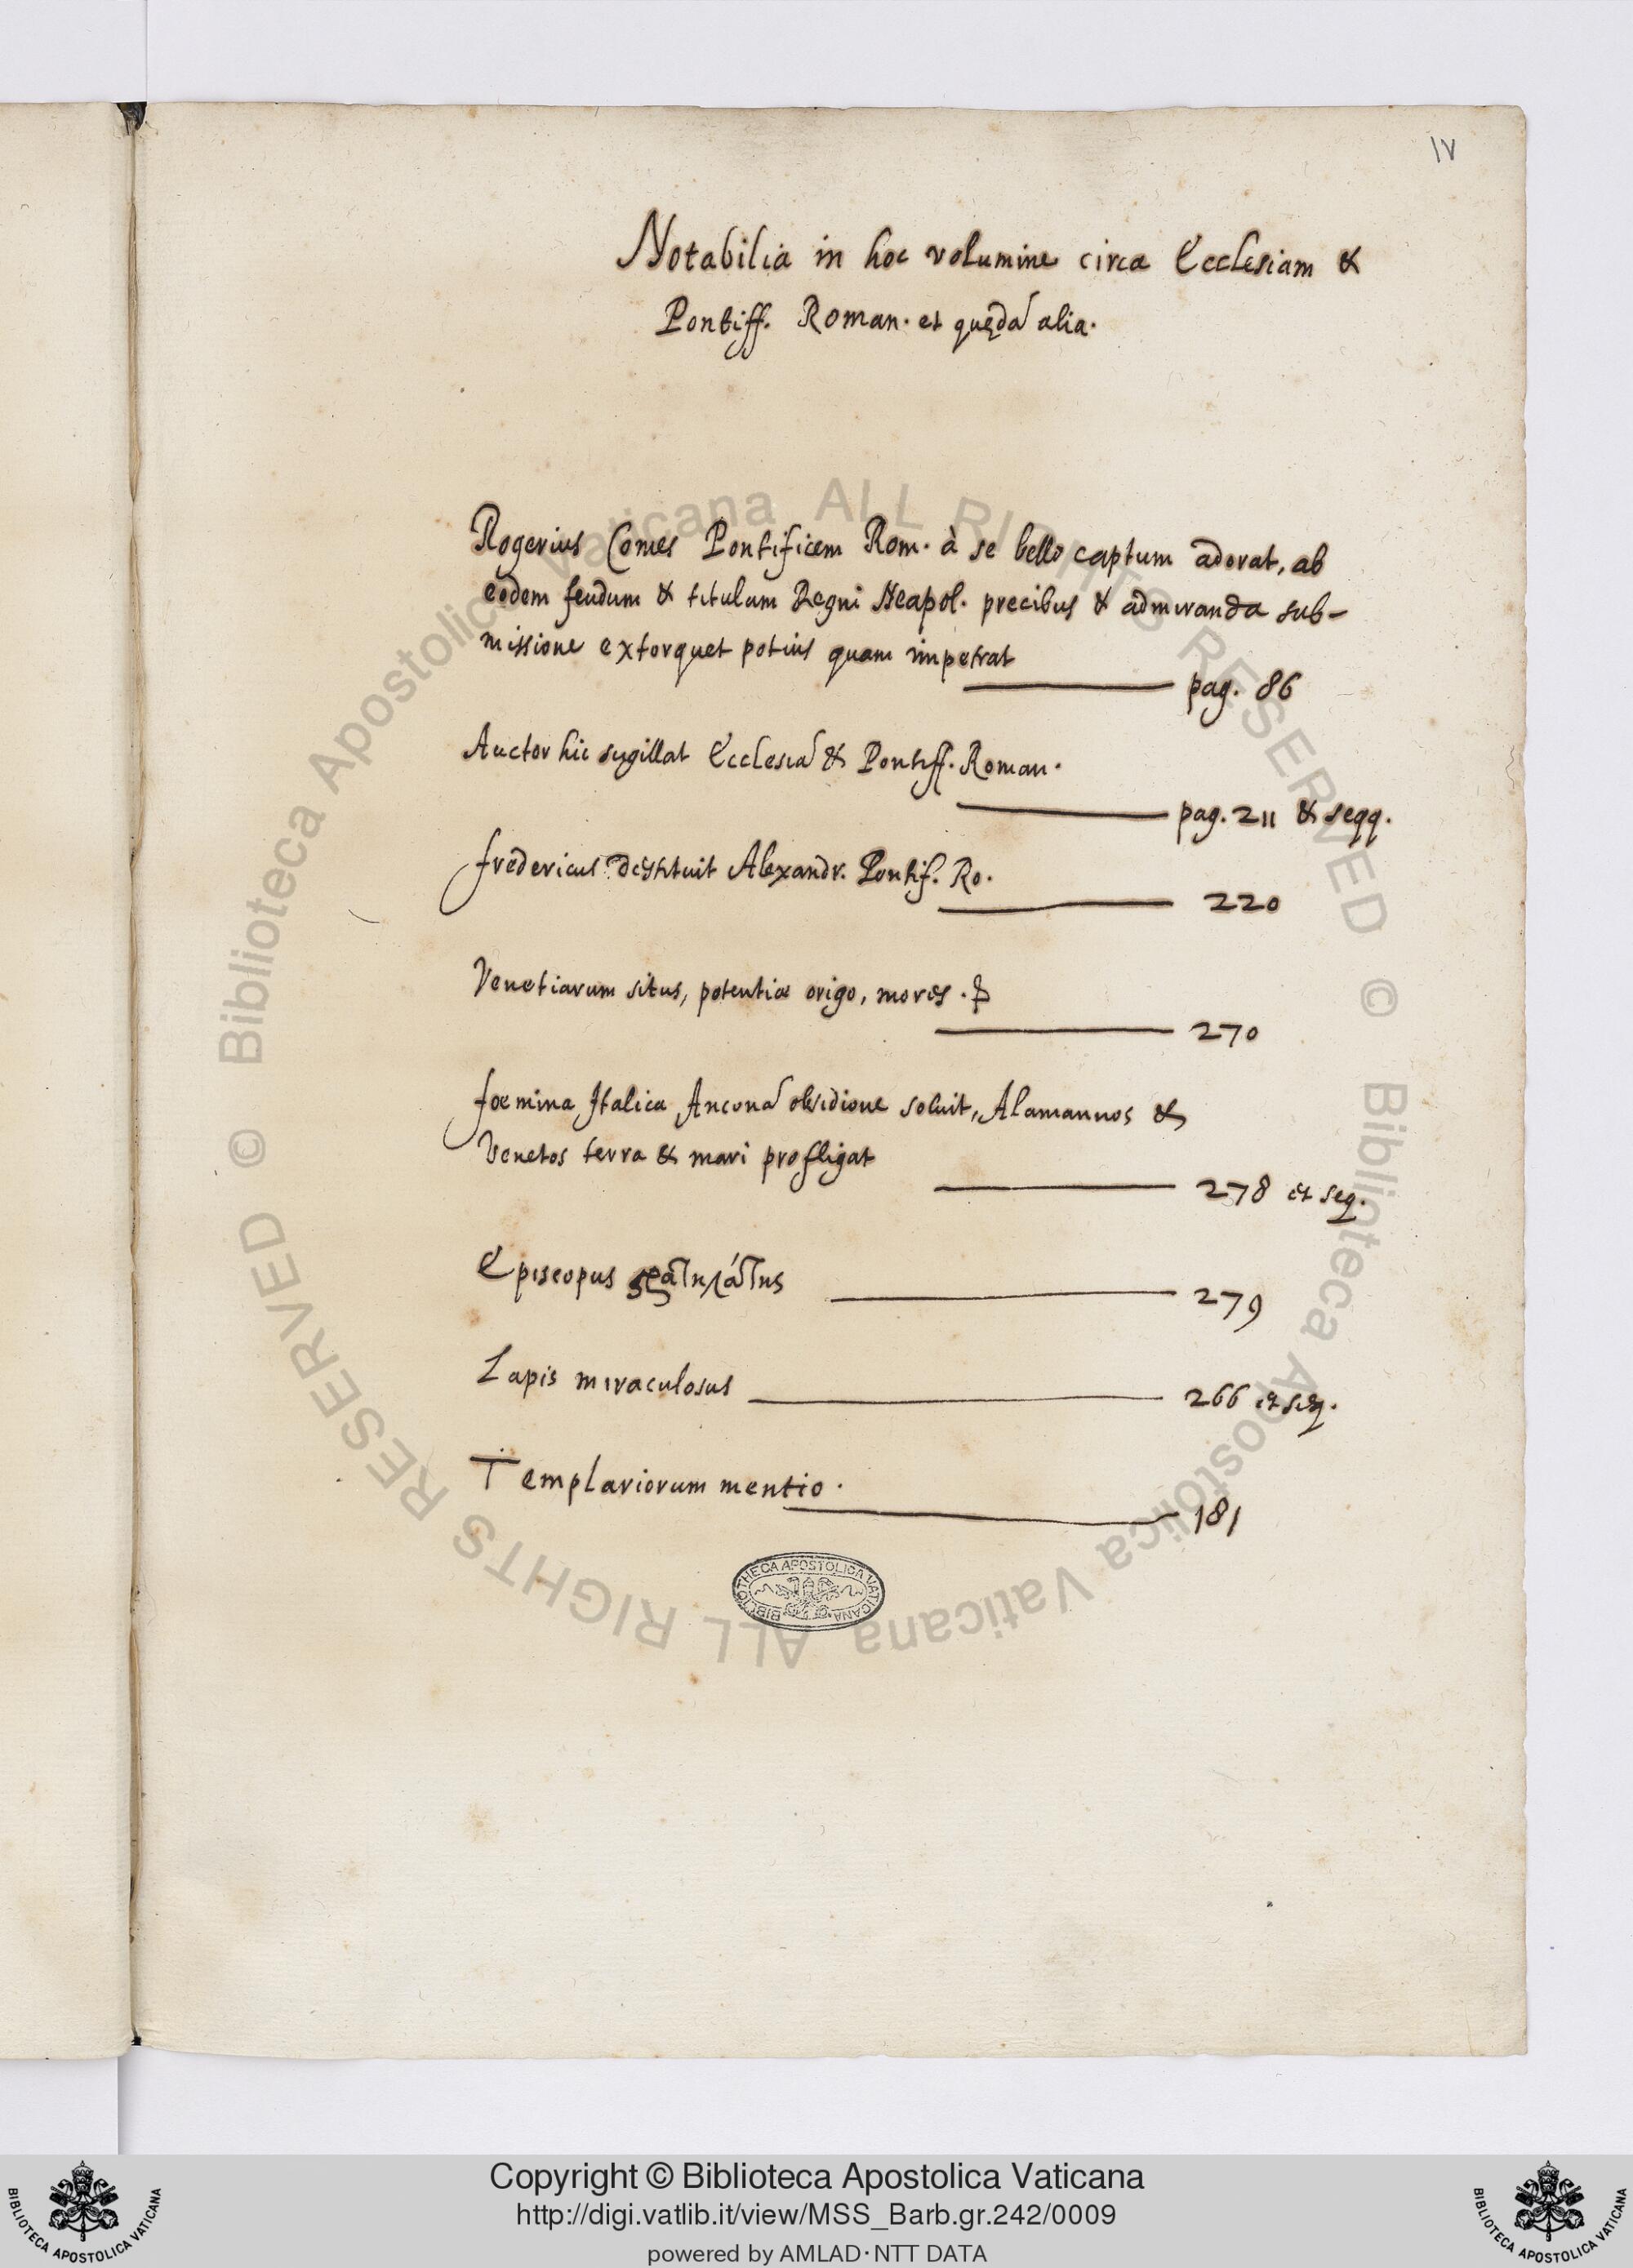 IV
Notabilia in hoc volumine circa Ecclesiam &
Pontiff. Roman. et quędā alia.
Rogerius Comes Pontificem Rom. à se bello captum adorat, ab
eodem feudum & titulum Regni Neapol. precibus & admiranda sub-
missione extorquet potius quam impetrat
pag. 86
Auctor hic sugillat Ecclesiā & Pontiff. Roman.
pag. 211 & seqq.
fredericus destituit Alexandr. Pontif. Ro.
220
Venetiarum situs, potentiæ origo, mores.
270
foemina Italica Anconā obsidione soluit, Alamannos &
Venetos terra & mari profligat
278 et seq.
Episcopus
279
Lapis miraculosus 266 et seq.
Templariorum mentio.
181
BIBLIOTHECA APOSTOLICA VATICANA
© Biblioteca Apostolica Vaticana ALL RIGHTS RESERVED
© Biblioteca Apostolica Vaticana ALL RIGHTS RESERVED
Copyright © Biblioteca Apostolica Vaticana
http://digi.vatlib.it/view/MSS_Barb.gr.242/0009
powered by AMLAD·NTT DATA
BIBLIOTECA APOSTOLICA VATICANA
BIBLIOTECA APOSTOLICA VATICANA